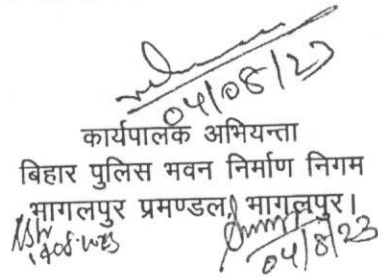 04/08/23
कार्यपालक अभियन्ता
बिहार पुलिस भवन निर्माण निगम
भागलपुर प्रमण्डल, भागलपुर।
04/8/23